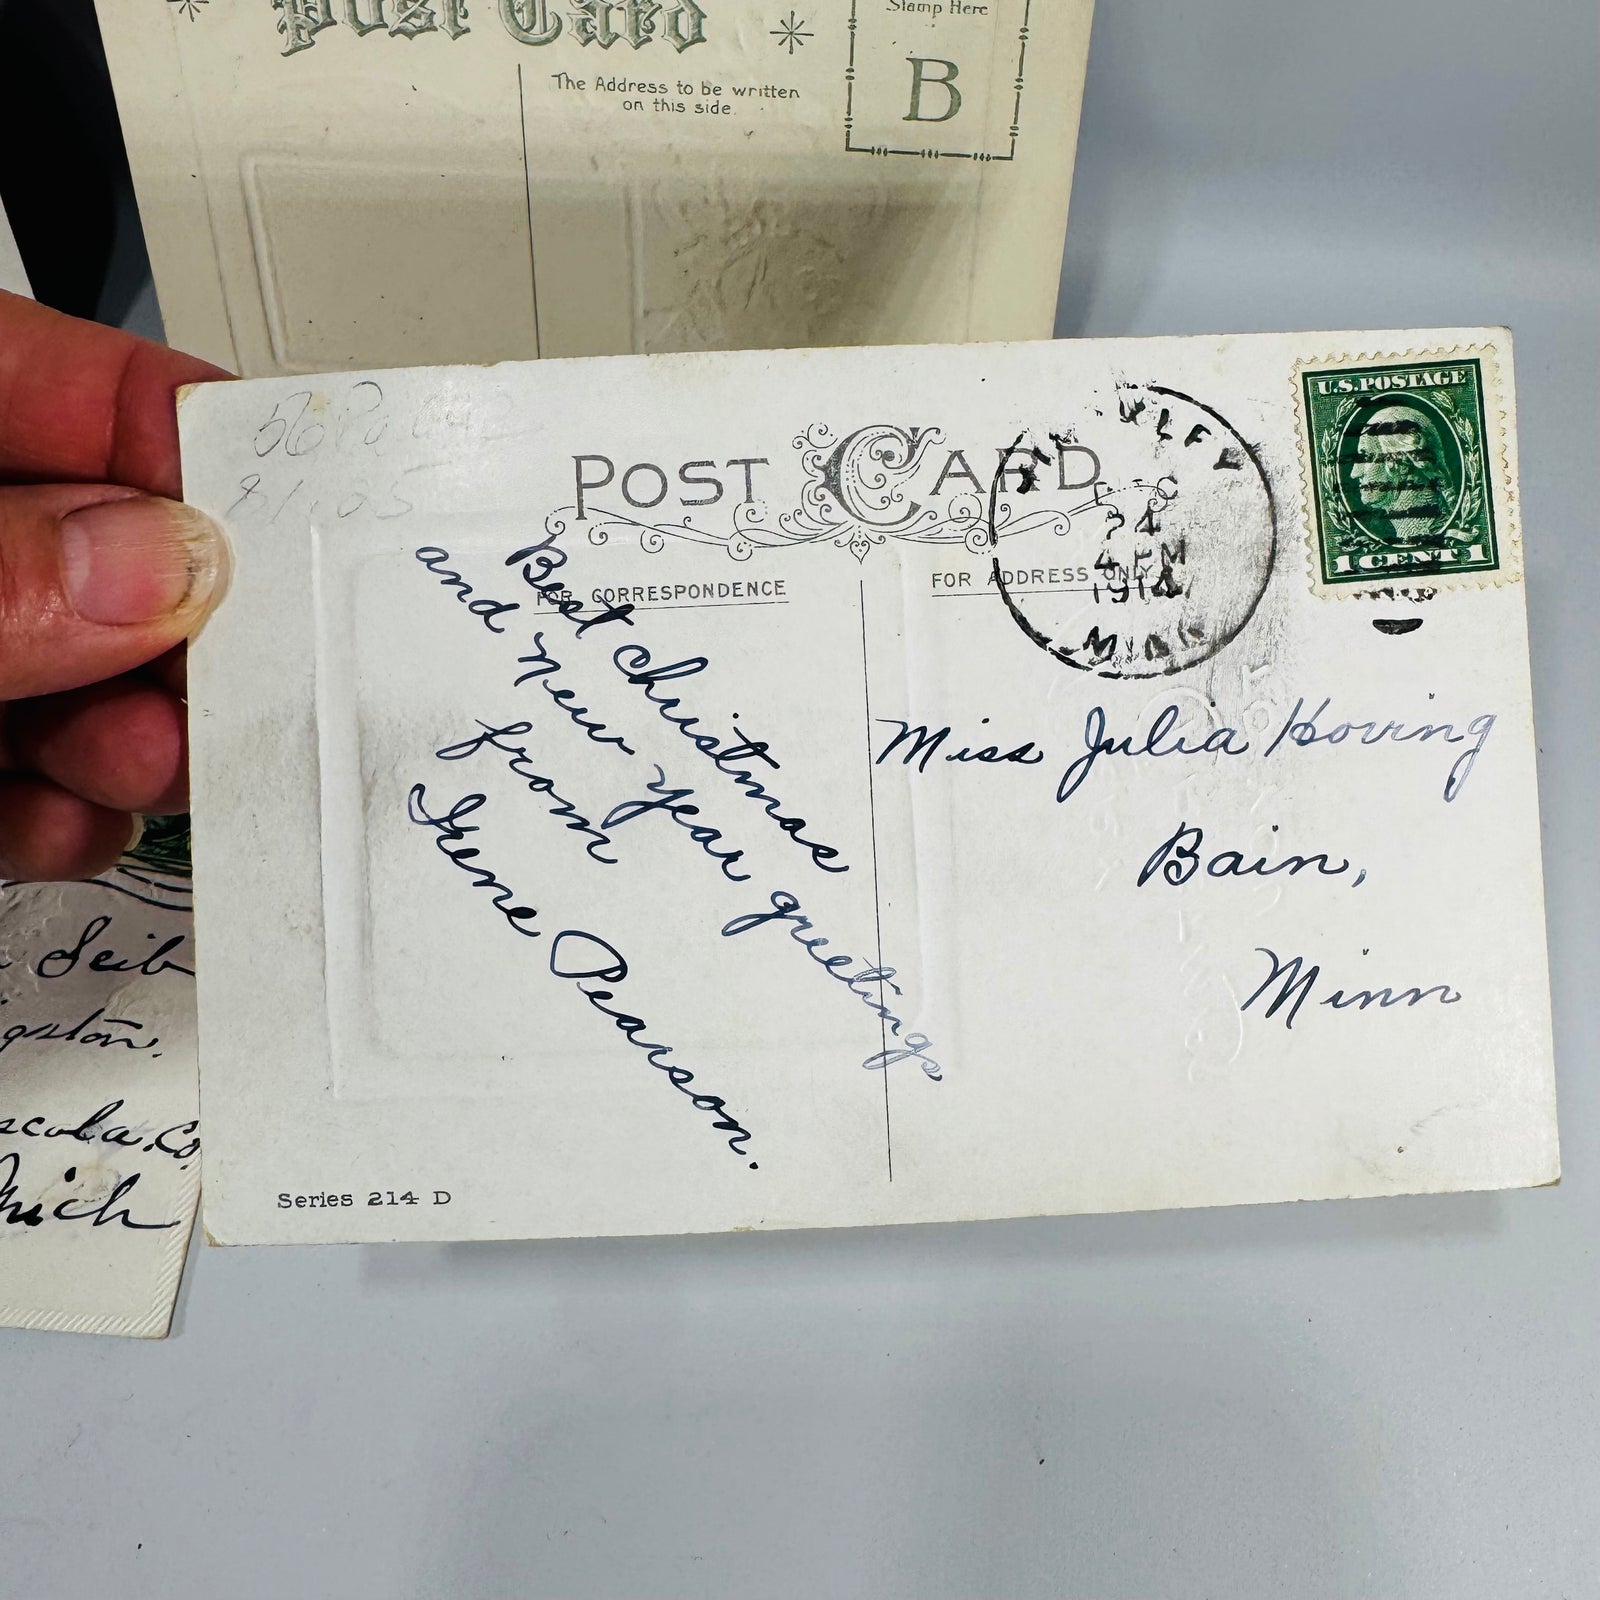 Post Card
The Address to be written
on this side.
Stamp Here
B
POST CARD
FOR CORRESPONDENCE
FOR ADDRESS ONLY
24
4 PM
1914
MINN
U.S. POSTAGE
1 CENT 1
Best Christmas
and New Year greetings
from
Irene Pearson.
Miss Julia Hoving
Bain,
Minn
Series 214 D
Seib
Co,
Mich